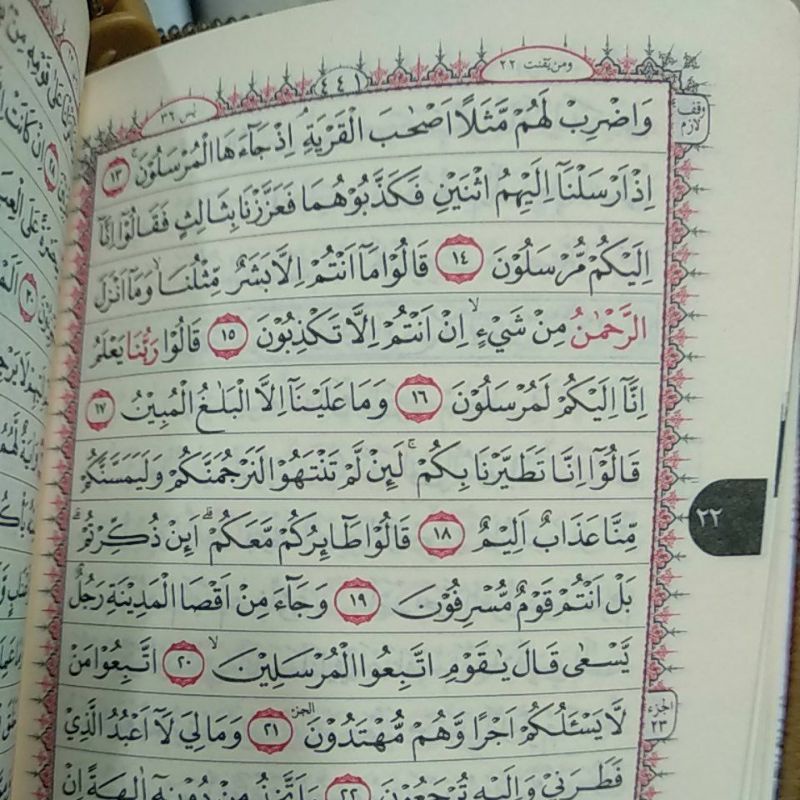 ومن يقنت ٢٢
٤٤١
يس ٣٦
وقف لازم
وَاضْرِبْ لَهُمْ مَّثَلًا اَصْحٰبَ الْقَرْيَةِۘ اِذْ جَاۤءَهَا الْمُرْسَلُوْنَۚ ١٣
اِذْ اَرْسَلْنَآ اِلَيْهِمُ اثْنَيْنِ فَكَذَّبُوْهُمَا فَعَزَّزْنَا بِثَالِثٍ فَقَالُوْٓا اِنَّآ
اِلَيْكُمْ مُّرْسَلُوْنَ ١٤ قَالُوْا مَآ اَنْتُمْ اِلَّا بَشَرٌ مِّثْلُنَاۙ وَمَآ اَنْزَلَ
الرَّحْمٰنُ مِنْ شَيْءٍۙ اِنْ اَنْتُمْ اِلَّا تَكْذِبُوْنَ ١٥ قَالُوْا رَبُّنَا يَعْلَمُ
اِنَّآ اِلَيْكُمْ لَمُرْسَلُوْنَ ١٦ وَمَا عَلَيْنَآ اِلَّا الْبَلٰغُ الْمُبِيْنُ ١٧
قَالُوْٓا اِنَّا تَطَيَّرْنَا بِكُمْۚ لَىِٕنْ لَّمْ تَنْتَهُوْا لَنَرْجُمَنَّكُمْ وَلَيَمَسَّنَّكُمْ
مِّنَّا عَذَابٌ اَلِيْمٌ ١٨ قَالُوْا طَاۤىِٕرُكُمْ مَّعَكُمْۗ اَىِٕنْ ذُكِّرْتُمْۗ
بَلْ اَنْتُمْ قَوْمٌ مُّسْرِفُوْنَ ١٩ وَجَاۤءَ مِنْ اَقْصَا الْمَدِيْنَةِ رَجُلٌ
يَّسْعٰى قَالَ يٰقَوْمِ اتَّبِعُوا الْمُرْسَلِيْنَۙ ٢٠ اتَّبِعُوْا مَنْ
لَّا يَسْـَٔلُكُمْ اَجْرًا وَّهُمْ مُّهْتَدُوْنَ الجزء ٢١ وَمَا لِيَ لَآ اَعْبُدُ الَّذِيْ
فَطَرَنِيْ وَاِلَيْهِ تُرْجَعُوْنَ ٢٢ ءَاَتَّخِذُ مِنْ دُوْنِهٖٓ اٰلِهَةً اِنْ
٢٢
الجزء ٢٣